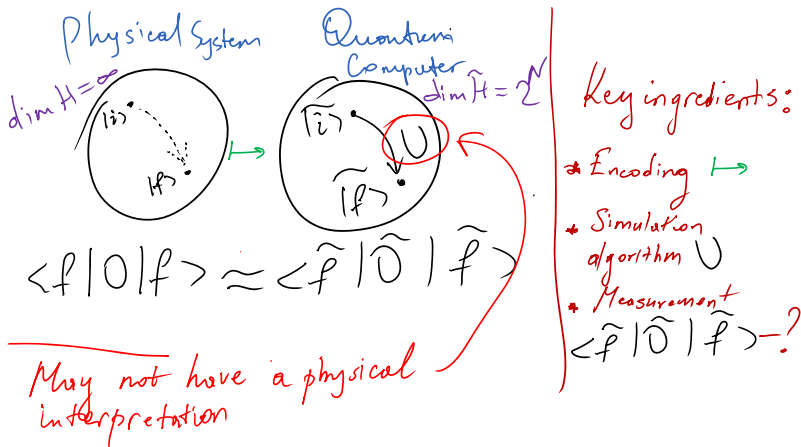 Physical System
dim H = ∞
|i>
|f>
Quantum
Computer
dim H̃ = 2^N
|ĩ>
U
|f̃>
<f|O|f> ≈ <f̃|Õ|f̃>
May not have a physical
interpretation
Key ingredients:
* Encoding ↦
* Simulation
algorithm U
* Measurement
<f̃|Õ|f̃> - ?